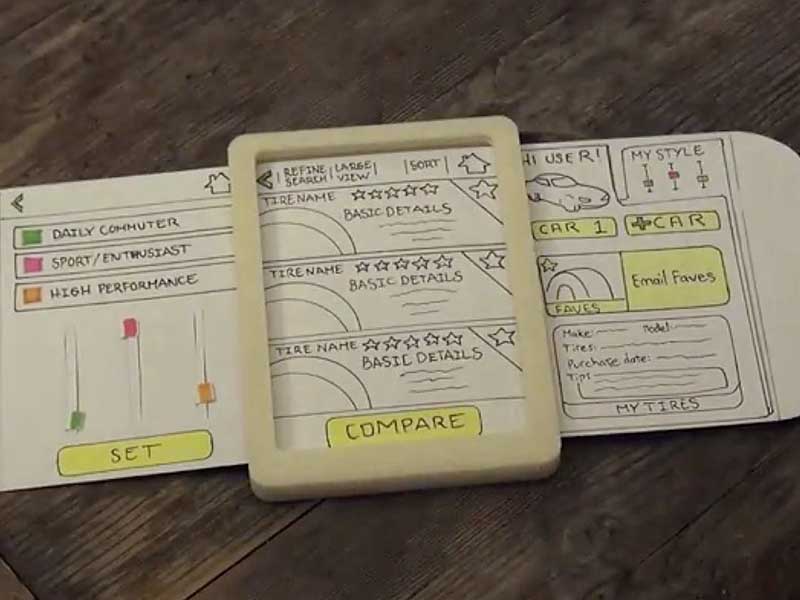 DAILY COMMUTER
SPORT/ENTHUSIAST
HIGH PERFORMANCE
SET
REFINE SEARCH
LARGE VIEW
SORT
TIRE NAME
BASIC DETAILS
TIRE NAME
BASIC DETAILS
TIRE NAME
BASIC DETAILS
COMPARE
HI USER!
MY STYLE
CAR 1
+CAR
FAVES
Email Faves
Make: Model:
Tires:
Purchase date:
Tips
MY TIRES